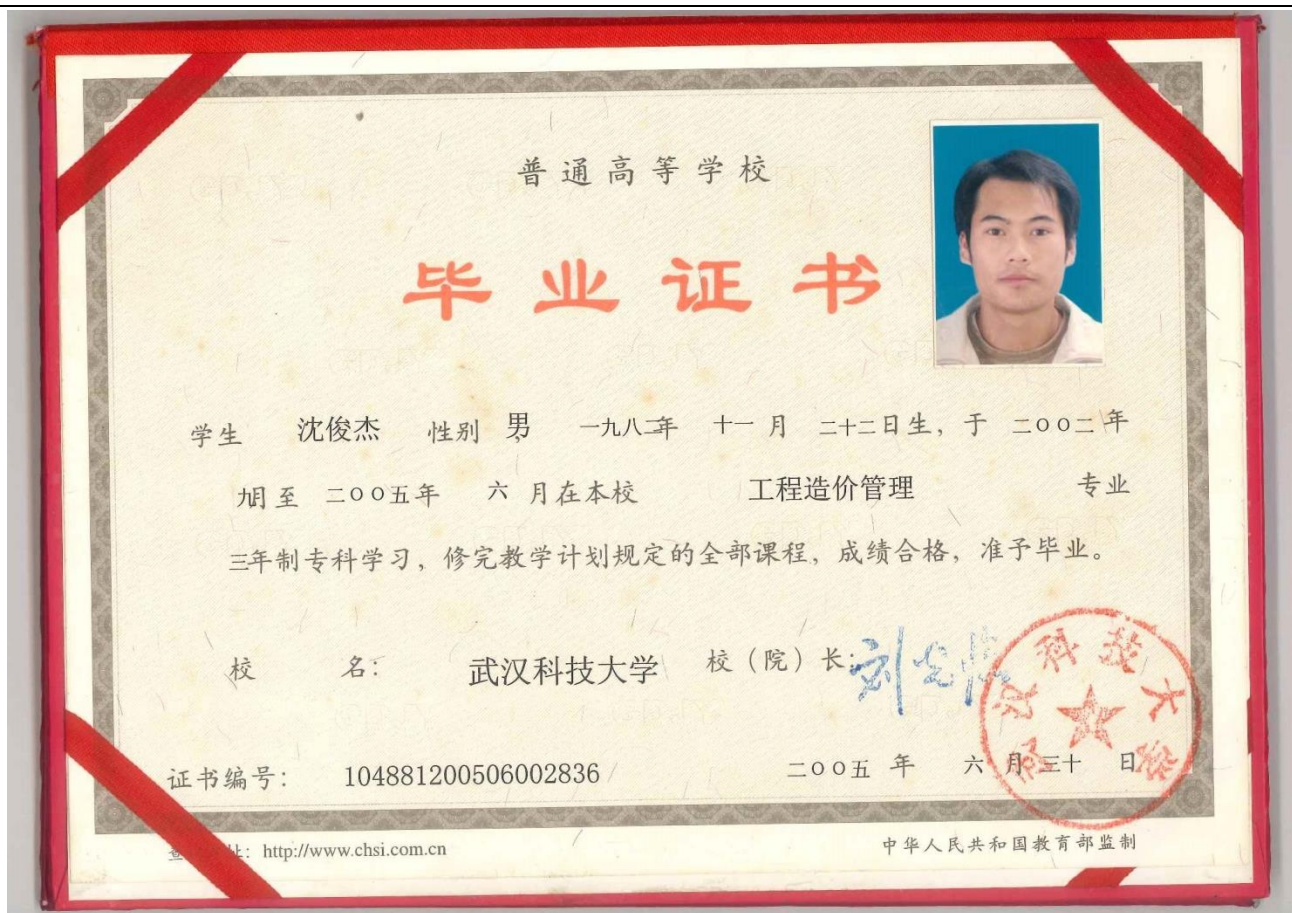 普通高等学校
毕业证书
学生 沈俊杰 性别 男 一九八二年 十一 月 二十二日生，于 二〇〇二年
九月至 二〇〇五年 六 月在本校 工程造价管理 专业
三年制专科学习，修完教学计划规定的全部课程，成绩合格，准予毕业。
校 名： 武汉科技大学 校（院）长：
武汉科技大学
证书编号： 104881200506002836 二〇〇五 年 六 月 三十 日
址：http://www.chsi.com.cn 中华人民共和国教育部监制